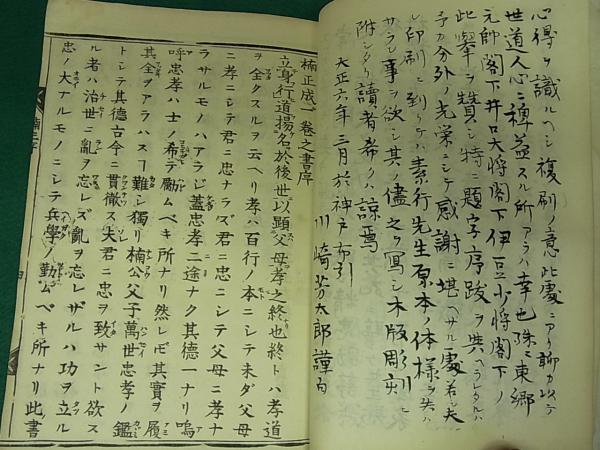 心得ヲ識ルヘシ複刷ノ意此處ニアリ聊カ以テ
世道人心ニ裨益スル所アラハ幸也殊ニ東郷
元帥閣下井口大将閣下伊豆少将閣下ノ
此擧ヲ賛シ特ニ題字序跋ヲ與ヘラレタルハ
予カ分外ノ光栄ニシテ感謝ニ堪ヘサル處若シ夫
レ印刷ニ到リテハ素行先生原本ノ体様ヲ失ハ
サラン事ヲ欲シ其ノ儘之ヲ寫シ木版彫刻ニ
附シタリ讀者希クハ諒焉
大正六年三月於神戸布引
川崎芳太郎謹白
楠正成一巻之書序
立身行道揚名於後世以顕父母孝之終也終トハ孝道
ヲ全クスルヲ云ヘリ孝ハ百行ノ本ニシテ未ダ父母
ニ孝ニシテ君ニ忠ナラズ君ニ忠ニシテ父母ニ孝ナ
ラサルモノハアラジ蓋忠孝二途ナク其德一ナリ嗚
呼忠孝ハ士ノ希テ勵ムベキ所ナリ然レモ其實ヲ履
其全ヲアラハスヿ難シ獨リ楠公父子萬世忠孝ノ鑑
トシテ其德古今ニ貫徹ス夫君ニ忠ヲ致サント欲ス
ル者ハ治世ニ亂ヲ忘レズ亂ヲ忘レザルハ功ヲ立ル
忠ノ大ナルモノニシテ兵學ノ勤ムベキ所ナリ此書